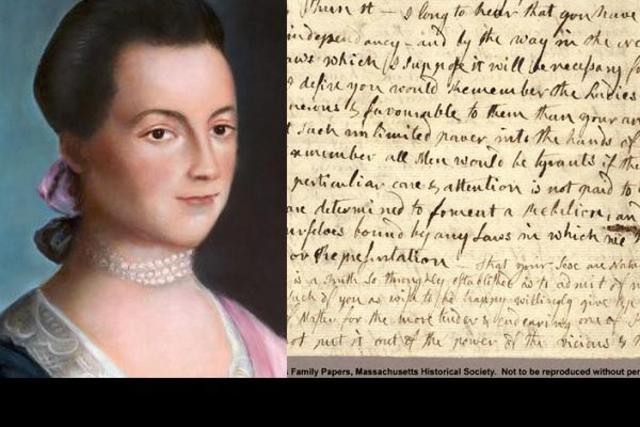 I long to hear that you have
independancy and by the way in the
Laws which I suppose it will be necessary
I desire you would Remember the Ladies
& favourable to them than your
such unlimited power into the hands of
remember all Men would be tyrants if the
perticuliar care & attention is not paid to
are determined to foment a Rebelion, an
ourselves bound by any Laws in which we
or Representation That your Sex are Natu
is a Truth so thoroughly established as to admit of n
such of you as wish to be happy willingly give up
of Master for the more tender & endearing one of
not put it out of the power of the vicious &
Family Papers, Massachusetts Historical Society. Not to be reproduced without per